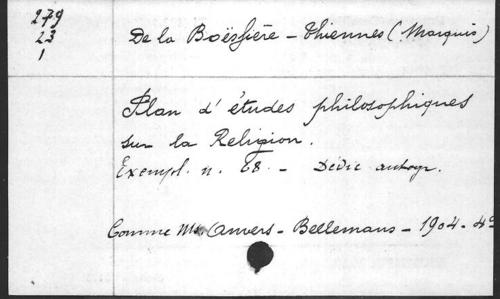 279
23
1
De la Boëssière - Thiennes (Marquis)
Plan d'études philosophiques
sur la Religion.
Exempl. n. 68. - Dédic autogr.
Comme Ms. Anvers - Bellemans - 1904. 4º